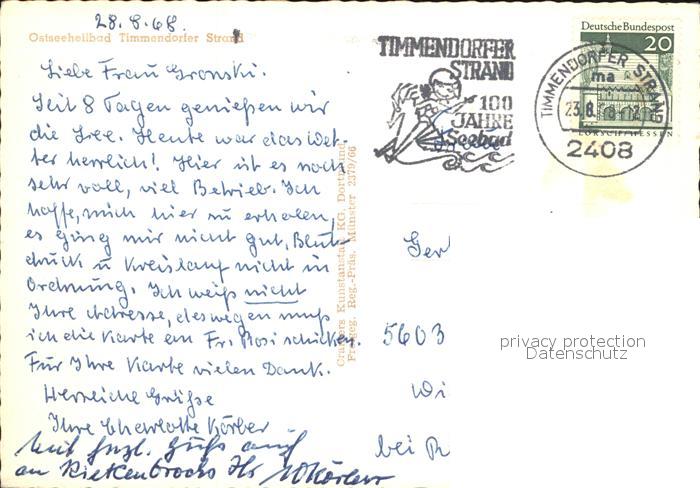 28.8.68.
Ostseeheilbad Timmendorfer Strand
Liebe Frau Gronski.
Seit 8 Tagen genießen wir
die See. Heute war das Wet-
ter herrlich! Hier ist es noch
sehr voll, viel Betrieb. Ich
hoffe, mich hier zu erholen,
es ging mir nicht gut, Blut-
druck u Kreislauf nicht in
Ordnung. Ich weiß nicht
Ihre Adresse, deswegen muß
ich die Karte an Fr. Rosi schicken.
Für Ihre Karte vielen Dank.
Herzliche Grüße
Ihre Charlotte Körber
Mit frzl. Gruß auch
an Rietkenbrocks Ihr WKörber
Cramers Kunstanstalt KG. Dortmund
Freigeg. Reg.-Präs. Münster 2379/66
TIMMENDORFER
STRAND
100
JAHRE
Seebad
TIMMENDORFER STRAND
ma
23.8.
2408
Deutsche Bundespost
20
LORSCH/HESSEN
Ger
5603
Wi
bei R
privacy protection
Datenschutz